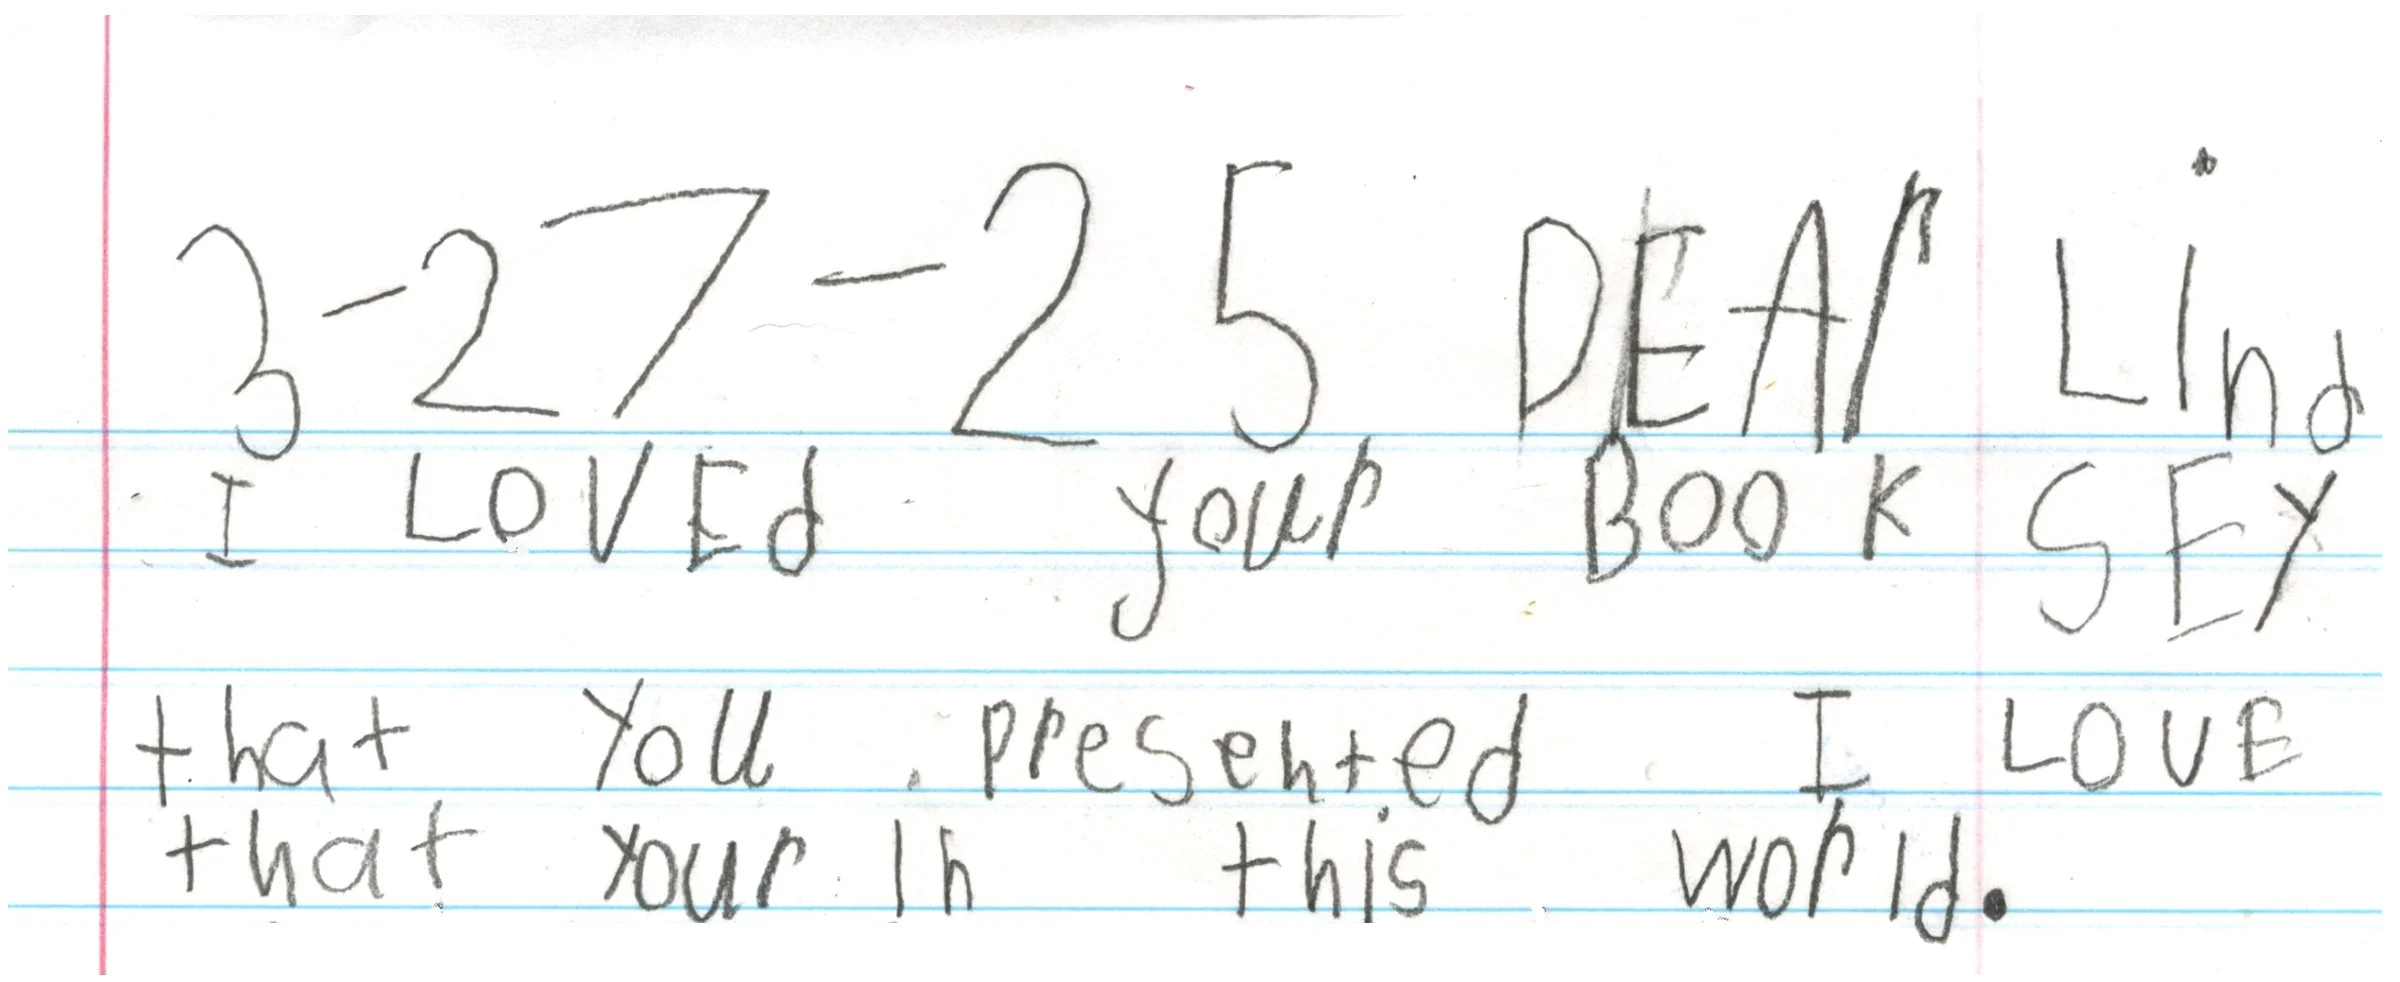 3-27-25 DEAr Lind
I LOVEd your BOOK SEY
that You presented I LOVE
that Your In this world.